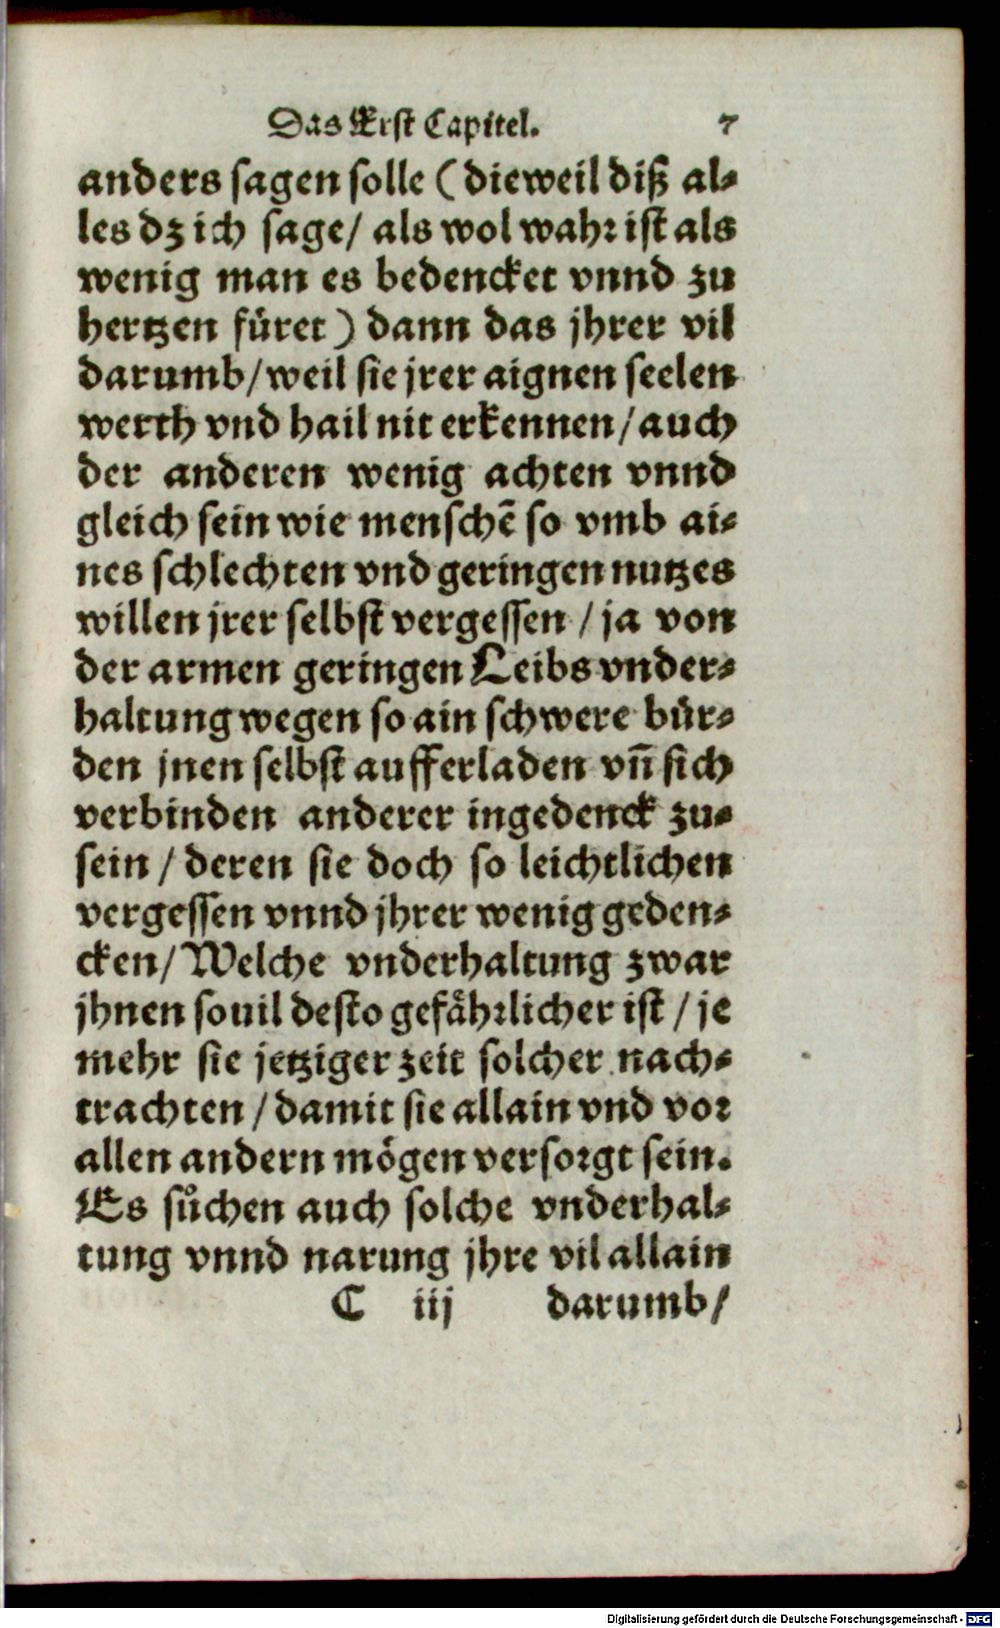 Das Erst Capitel. 7
anders sagen solle (dieweil diß al⸗
les dz ich sage/ als wol wahr ist als
wenig man es bedencket vnnd zu
hertzen füret) dann das jhrer vil
darumb/weil sie jrer aignen seelen
werth vnd hail nit erkennen/auch
der anderen wenig achten vnnd
gleich sein wie menschē so vmb ai⸗
nes schlechten vnd geringen nutzes
willen jrer selbst vergessen / ja von
der armen geringen Leibs vnder⸗
haltung wegen so ain schwere bür⸗
den jnen selbst aufferladen vñ sich
verbinden anderer ingedenck zu⸗
sein / deren sie doch so leichtlichen
vergessen vnnd jhrer wenig geden⸗
cken/Welche vnderhaltung zwar
jhnen souil desto gefährlicher ist / je
mehr sie jetziger zeit solcher nach⸗
trachten / damit sie allain vnd vor
allen andern mögen versorgt sein.
Es sůchen auch solche vnderhal⸗
tung vnnd narung jhre vil allain
C iij darumb/
Digitalisierung gefördert durch die Deutsche Forschungsgemeinschaft - DFG